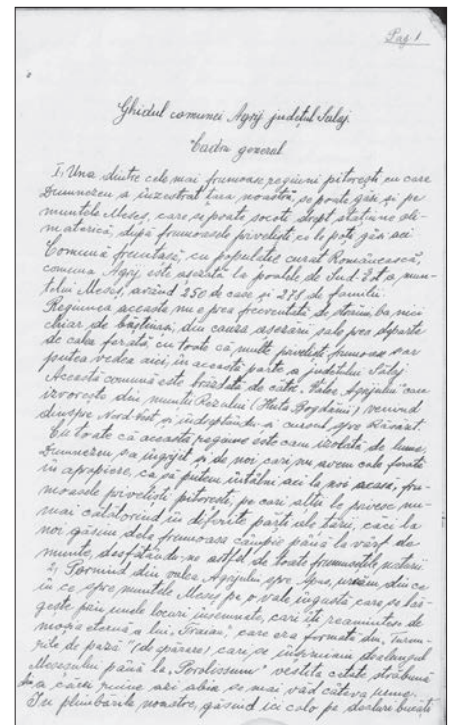 Pag. 1
Ghidul comunei Agrij județul Sălaj.
Cadru general
I. Una dintre cele mai frumoase regiuni pitorești cu care
Dumnezeu a înzestrat țara noastră, se poate găsi și pe
muntele Meseș, care se poate socoti drept stațiune cli-
materică, după frumoasele priveliști ce le poți găsi aci
Comună fruntașă, cu populație curat Românească,
comuna Agrij este așezată la poalele de Sud-Est a mun-
telui Meseș, având 250 de case și 278 de familii.
Regiunea aceasta nu e prea frecventată de străini, ba nici
chiar de băștinași, din cauza așezării sale prea departe
de calea ferată, cu toate că multe priveliști frumoase s-ar
putea vedea aici, în această parte a județului Sălaj
Această comună este brăzdată de către "Valea Agrijului" care
izvorește din muntele Rezului (Huta Bogdanii) venind
dinspre Nord-Vest și îndreptându-și cursul spre Răsărit.
Cu toate că această regiune este cam izolată de lume,
Dumnezeu s-a îngrijit și de noi cari nu avem cale ferată
în apropiere, ca să putem întâlni aci la noi acasă, fru-
moasele priveliști pitorești, pe cari alții le privesc nu-
mai călătorind în diferite părți ale țării, căci la
noi găsim dela frumoasa câmpie până la vârf de
munte, desfătându-ne astfel de toate frumusețile naturii
2) Pornind din valea Agrijului spre Apus, urcăm din ce
în ce spre muntele Meseș pe o vale îngustă care se lăr-
gește prin unele locuri însemnate, cari îți reamintesc de
moșia eternă a lui "Traian", care era formată din "turnu-
rile de pază" (de apărare) cari se înșiruiau dealungul
Meseșului până la "Porolissum" vestita cetate străbună
din a cărei ruine azi abia se mai văd câteva urme.
În plimbările noastre, găsind ici colo pe dealuri bucăți